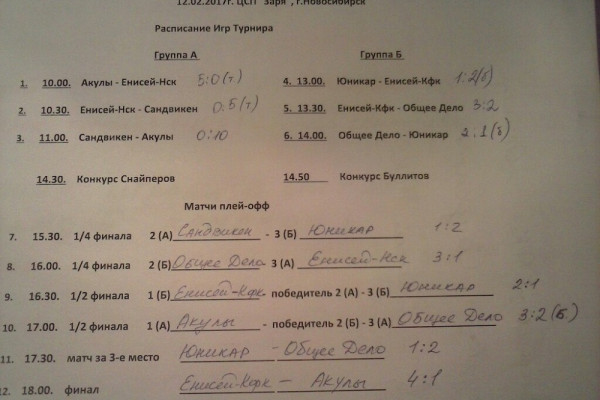 12.02.2017г. ЦСП "Заря", г.Новосибирск
Расписание Игр Турнира
Группа А Группа Б
1. 10.00. Акулы - Енисей-Нск 5:0(т) 4. 13.00. Юникар - Енисей-Кфк 1:2(б)
2. 10.30. Енисей-Нск - Сандвикен 0:5(т) 5. 13.30. Енисей-Кфк - Общее Дело 3:2
3. 11.00. Сандвикен - Акулы 0:10 6. 14.00. Общее Дело - Юникар 2:1(б)
14.30. Конкурс Снайперов 14.50 Конкурс Буллитов
Матчи плей-офф
7. 15.30. 1/4 финала 2 (А) Сандвикен - 3 (Б) Юникар 1:2
8. 16.00. 1/4 финала 2 (Б) Общее Дело 3 (А) Енисей-Нск 3:1
9. 16.30. 1/2 финала 1 (Б) Енисей-Кфк - победитель 2 (А) - 3 (Б) Юникар 2:1
10. 17.00. 1/2 финала 1 (А) Акулы - победитель 2 (Б) - 3 (А) Общее Дело 3:2(б.)
11. 17.30. матч за 3-е место Юникар - Общее Дело 1:2
12. 18.00. финал Енисей-Кфк - Акулы 4:1